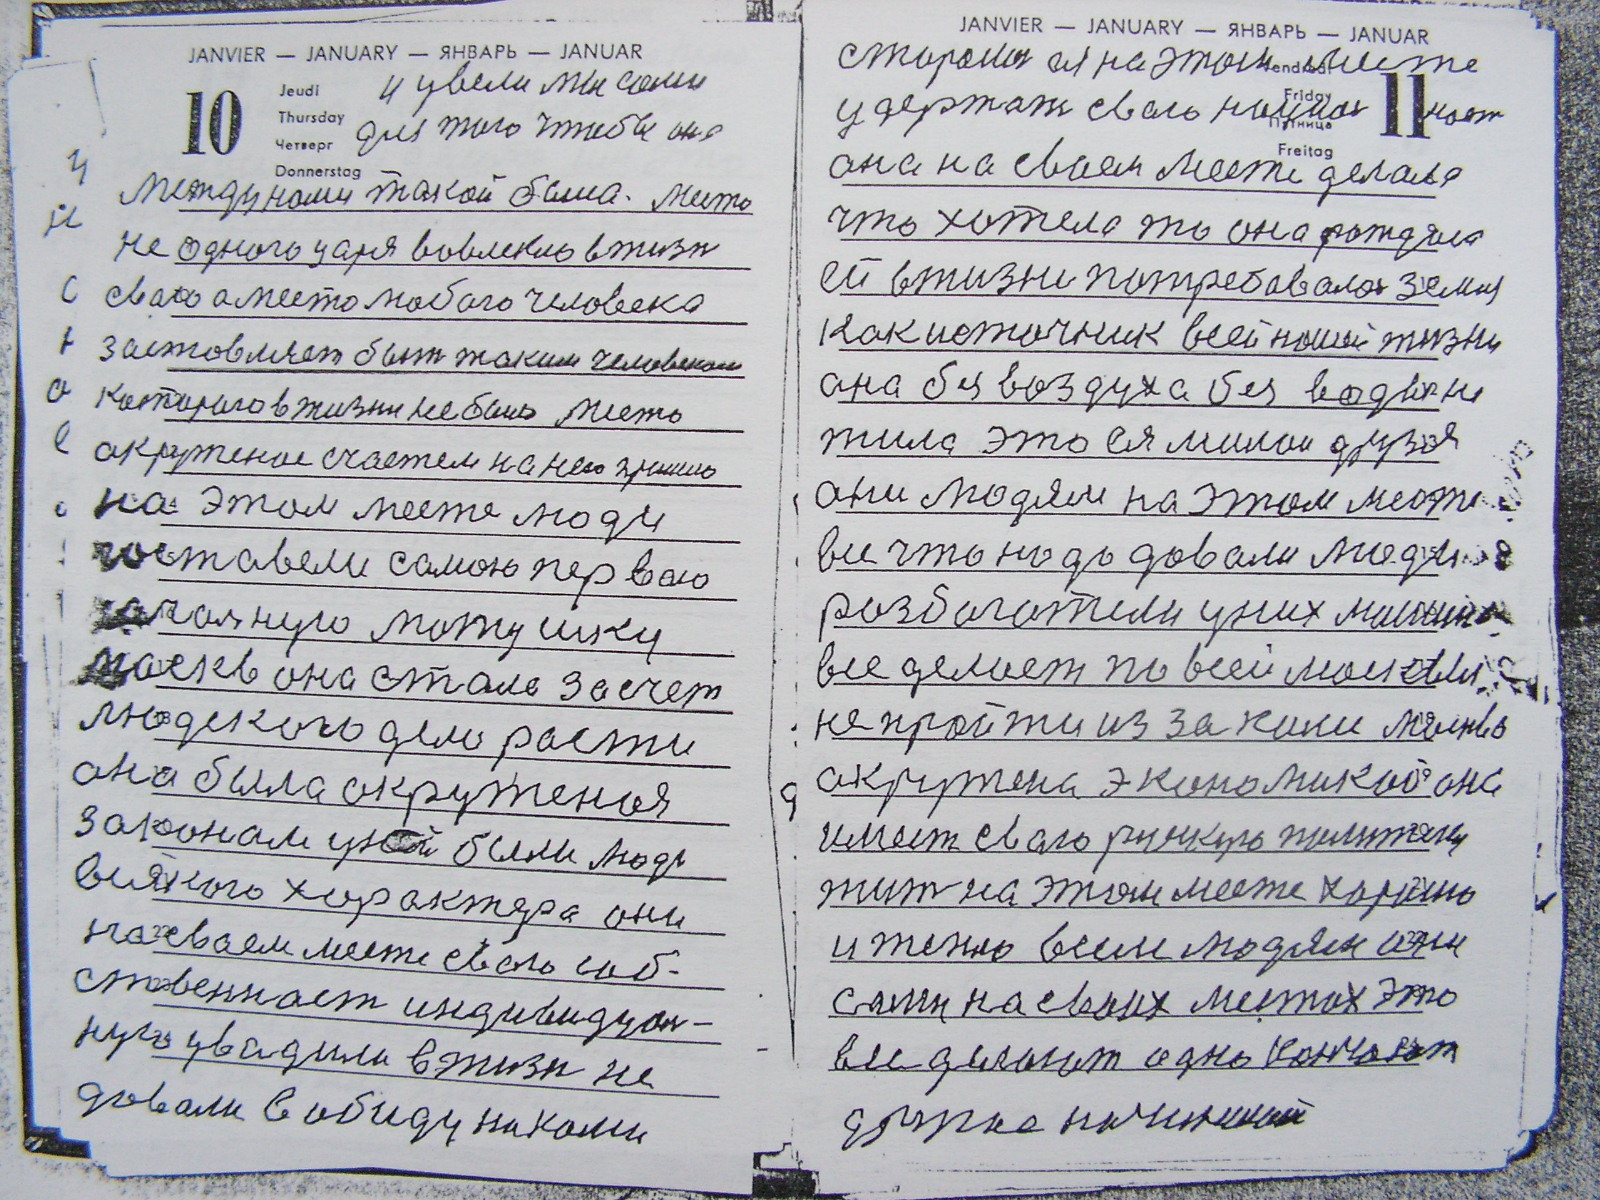 JANVIER — JANUARY — ЯНВАРЬ — JANUAR
10
Jeudi
Thursday
Четверг
Donnerstag
и увели мы сами
для того чтобы она
между нами такой была. место
не одного царя вовлекло в жизн
сваю а место любого человека
заставляет быт таким человеком
которого в жизни не было место
акруженое счастем на него
на этом месте люди
поставели самою перваю
матушку
москв она стала за счет
людского дело расти
она была окруженая
законам у ней были люди
всякого характера они
на сваем месте сваю соб-
ственност индивидуал-
ную увадили в жизн не
давали в обиду никоми
JANVIER — JANUARY — ЯНВАРЬ — JANUAR
11
Vendredi
Friday
Пятница
Freitag
стороны ей на этом месте
удержат сваю
ана на сваем месте делала
что хотела то она рождала
ей в жизни потребовалас земля
как источник всей нашей жизни
ана без воздуха без воды ни
жила это ея милаи друзя
ани людям на этом месте
все что надо довали люди
разбогатели у них
все делает по всей москвы
не пройти из за
акружена экономикой она
имеет сваю политику
жит на этом месте хорошо
и всем людям они
сами на своих местах это
все делают одно кончают
другое начинают